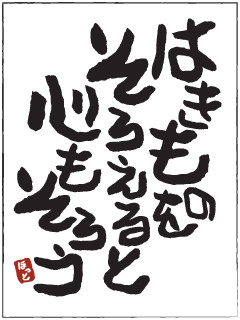 はきものを
そろえると
心もそろう
ほっと